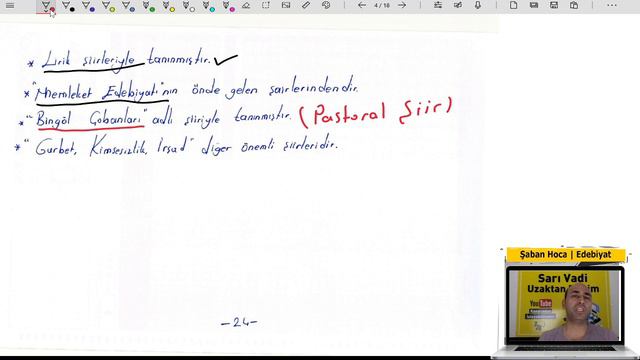 4 / 18
* Lirik şiirleriyle tanınmıştır. ✓
* "Memleket Edebiyatı"nın önde gelen şairlerindendir.
* "Bingöl Çobanları" adlı şiiriyle tanınmıştır. (Pastoral Şiir)
* "Gurbet, Kimsesizlik, İrşad" diğer önemli şiirleridir.
-24-
Şaban Hoca | Edebiyat
Sarı Vadi
Uzaktan
YouTube